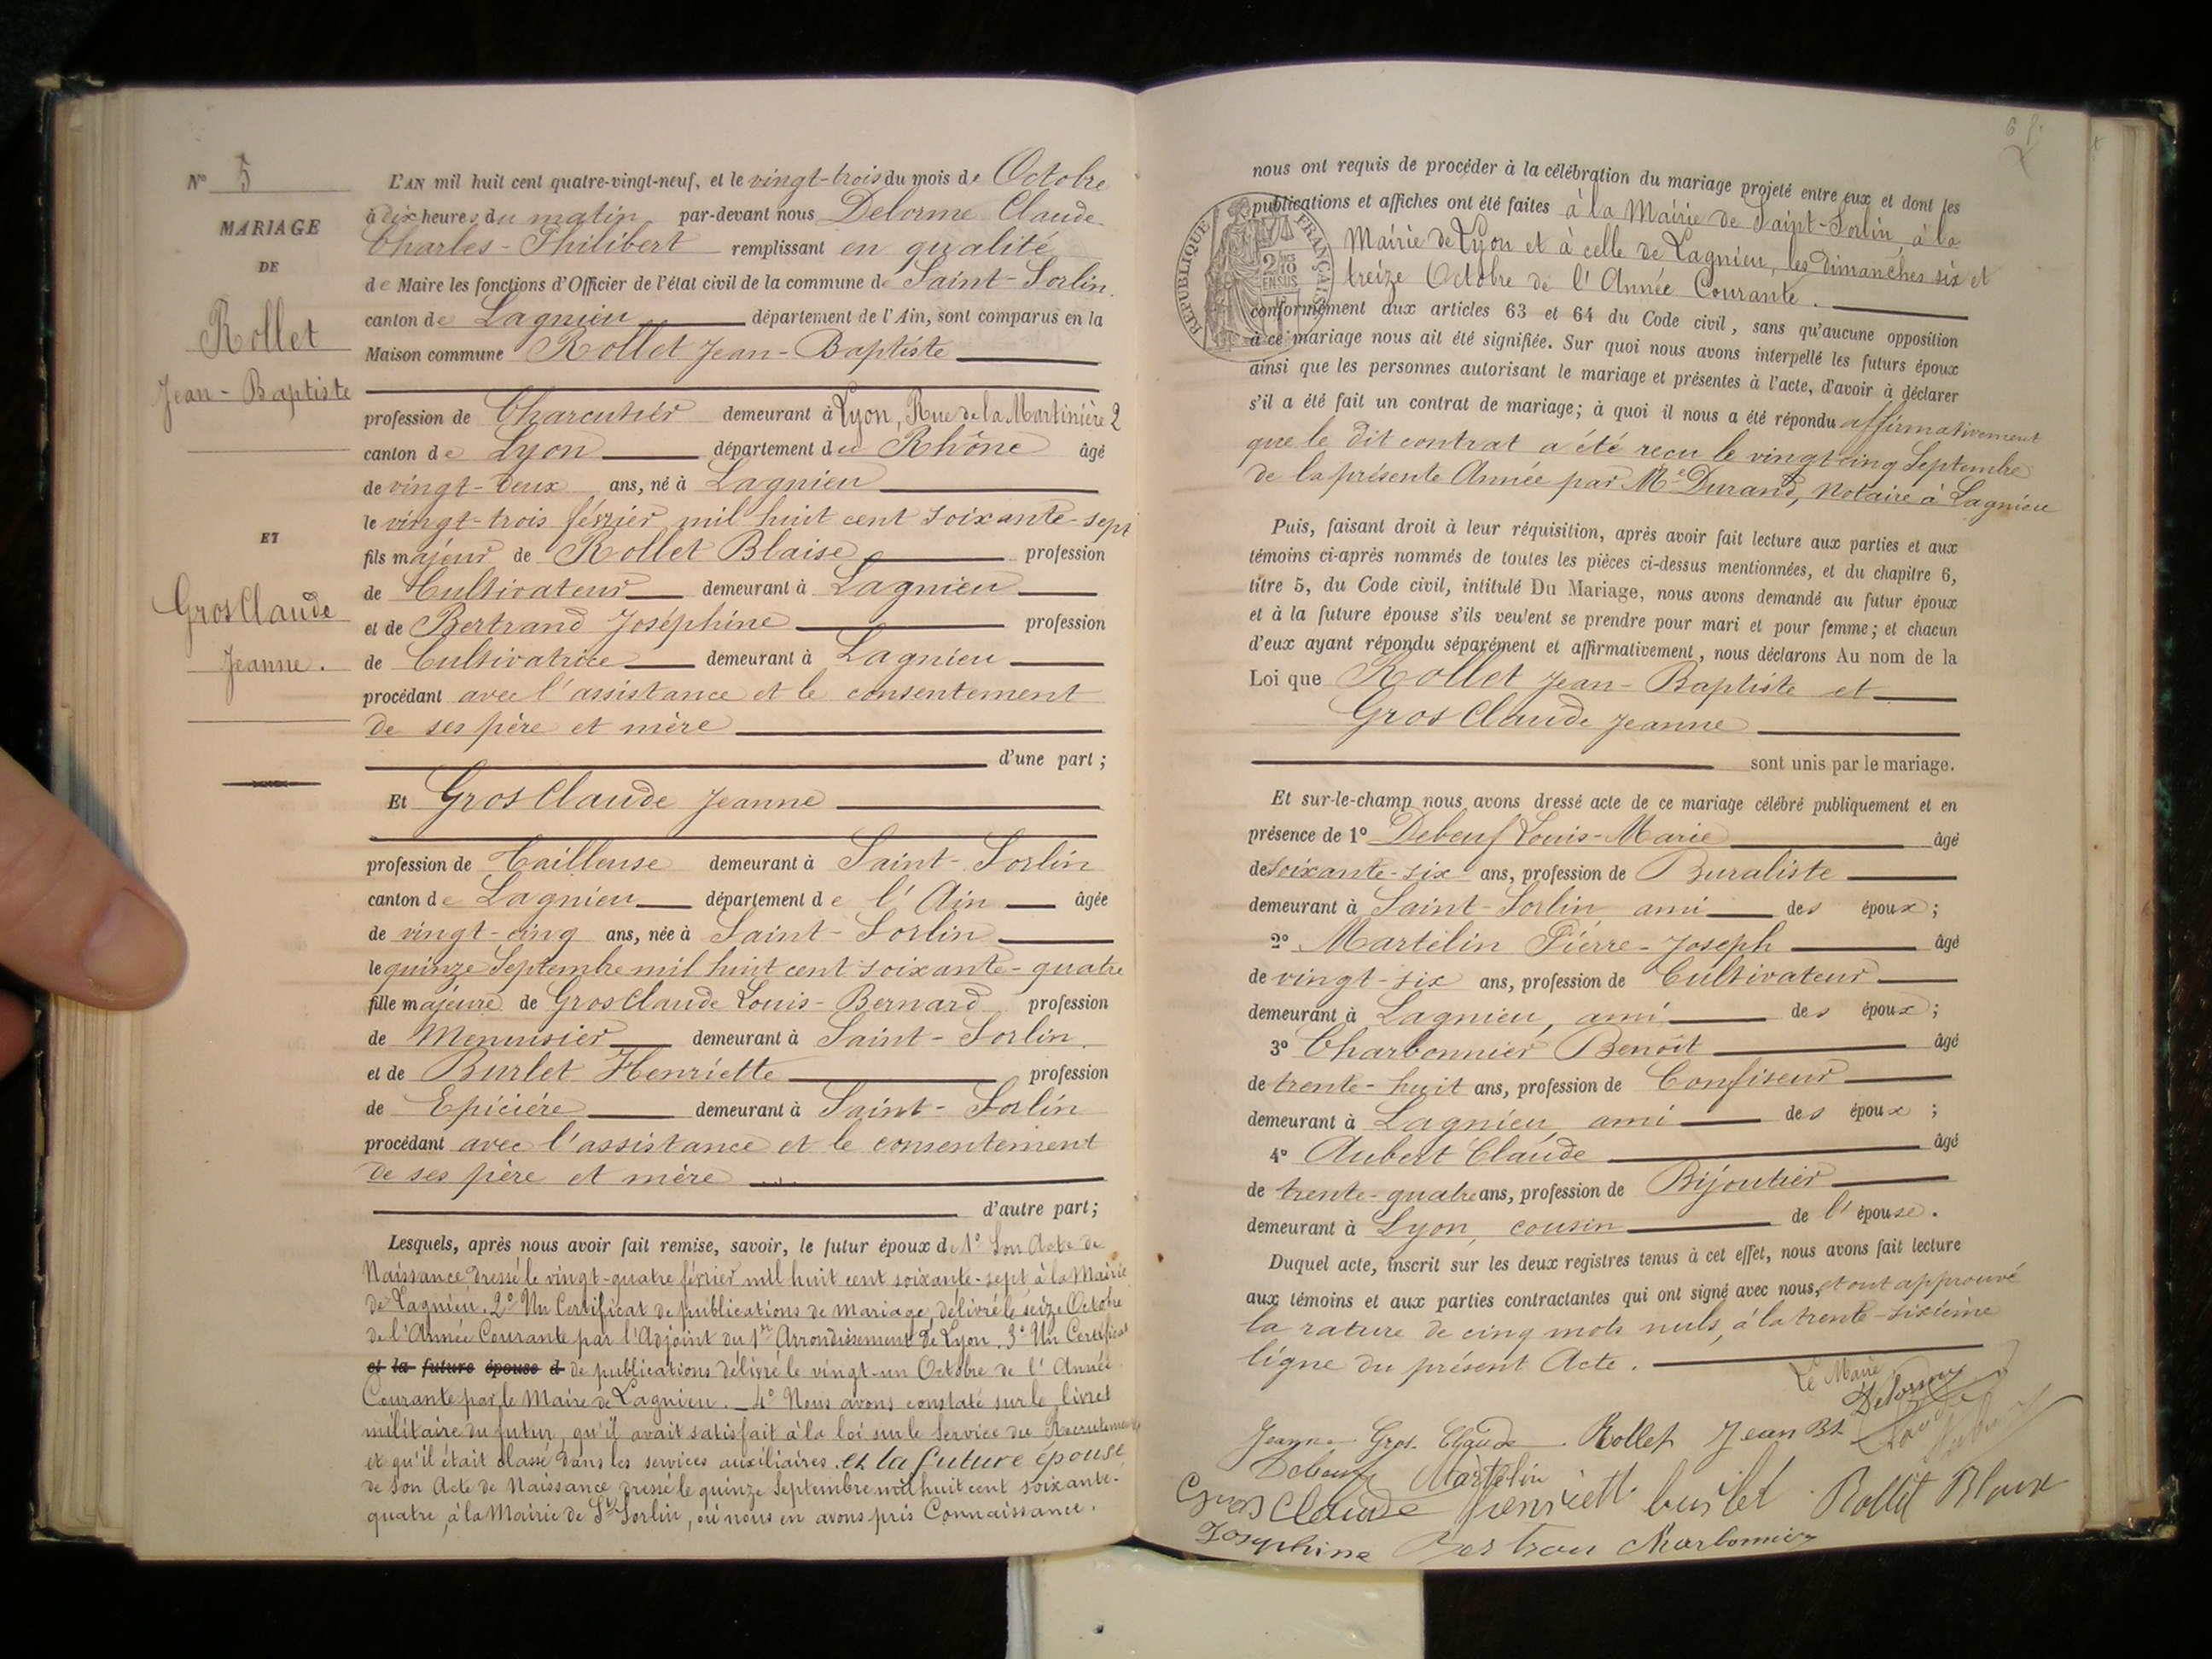 N° 5
MARIAGE
DE
Rollet
Jean-Baptiste
ET
GrosClaude
Jeanne.
L'AN mil huit cent quatre-vingt-neuf, et le vingt-trois du mois de Octobre
à dix heures du matin par-devant nous Delorme Claude-
Charles-Philibert remplissant en qualité
de Maire les fonctions d'Officier de l'état civil de la commune de Saint-Sorlin
canton de Lagnieu département de l'Ain, sont comparus en la
Maison commune Rollet Jean-Baptiste
profession de Charcutier demeurant à Lyon, Rue de la Martinière 2
canton de Lyon département du Rhône âgé
de vingt-deux ans, né à Lagnieu
le vingt-trois février mil huit cent soixante-sept
fils majeur de Rollet Blaise profession
de Cultivateur demeurant à Lagnieu
et de Bertrand Joséphine profession
de Cultivatrice demeurant à Lagnieu
procédant avec l'assistance et le consentement
de ses père et mère
d'une part ;
Et GrosClaude Jeanne
profession de Tailleuse demeurant à Saint-Sorlin
canton de Lagnieu département de l'Ain âgée
de vingt-cinq ans, née à Saint-Sorlin
le quinze Septembre mil huit cent soixante-quatre
fille majeure de GrosClaude Louis-Bernard profession
de Menuisier demeurant à Saint-Sorlin.
et de Burlet Henriette profession
de Epicière demeurant à Saint-Sorlin
procédant avec l'assistance et le consentement
de ses père et mère
d'autre part ;
Lesquels, après nous avoir fait remise, savoir, le futur époux de 1° Son Acte de
Naissance dressé le vingt-quatre février mil huit cent soixante-sept à la Mairie
de Lagnieu. 2° Un Certificat de publications de mariage, délivré le seize Octobre
de l'Année Courante par l'Adjoint du 1er Arrondissement de Lyon. 3° Un Certificat
et la future épouse d de publications délivré le vingt-un Octobre de l'Année
Courante par le Maire de Lagnieu. _ 4° Nous avons constaté sur le livret
militaire du futur, qu'il avait satisfait à la loi sur le Service du Recrutement
et qu'il était classé dans les services auxiliaires. et la future épouse
de son Acte de Naissance dressé le quinze Septembre mil huit cent soixante-
quatre, à la Mairie de St Sorlin, où nous en avons pris Connaissance.
nous ont requis de procéder à la célébration du mariage projeté entre eux et dont les
publications et affiches ont été faites à la Mairie de Saint-Sorlin, à la
Mairie de Lyon et à celle de Lagnieu, les dimanches six et
treize Octobre de l'Année Courante.
RÉPUBLIQUE FRANÇAISE
2/10 EN SUS
conformément aux articles 63 et 64 du Code civil, sans qu'aucune opposition
à ce mariage nous ait été signifiée. Sur quoi nous avons interpellé les futurs époux
ainsi que les personnes autorisant le mariage et présentes à l'acte, d'avoir à déclarer
s'il a été fait un contrat de mariage ; à quoi il nous a été répondu affirmativement
que le dit contrat a été reçu le vingt-cinq Septembre
de la présente Année par Me Durand, Notaire à Lagnieu
Puis, faisant droit à leur réquisition, après avoir fait lecture aux parties et aux
témoins ci-après nommés de toutes les pièces ci-dessus mentionnées, et du chapitre 6,
titre 5, du Code civil, intitulé Du Mariage, nous avons demandé au futur époux
et à la future épouse s'ils veulent se prendre pour mari et pour femme ; et chacun
d'eux ayant répondu séparément et affirmativement, nous déclarons Au nom de la
Loi que Rollet Jean-Baptiste et
GrosClaude Jeanne
sont unis par le mariage.
Et sur-le-champ nous avons dressé acte de ce mariage célébré publiquement et en
présence de 1° Debeuf Louis-Marie âgé
de soixante-six ans, profession de Buraliste
demeurant à Saint-Sorlin, ami des époux ;
2° Martelin Pierre-Joseph âgé
de vingt-six ans, profession de Cultivateur
demeurant à Lagnieu, ami des époux ;
3° Charbonnier Benoît âgé
de trente-huit ans, profession de Confiseur
demeurant à Lagnieu, ami des époux ;
4° Aubert Claude âgé
de trente-quatre ans, profession de Bijoutier
demeurant à Lyon, cousin de l'épouse.
Duquel acte, inscrit sur les deux registres tenus à cet effet, nous avons fait lecture
aux témoins et aux parties contractantes qui ont signé avec nous, et ont approuvé
la rature de cinq mots nuls, à la trente-sixième
ligne du présent Acte.
Le Maire
Delorme
Jeanne Gros Claude Rollet Jean Bt
Debeuf Martelin
Gros Claude henriett burlet Rollet Blaise
Josephine Bertran Charbonnier